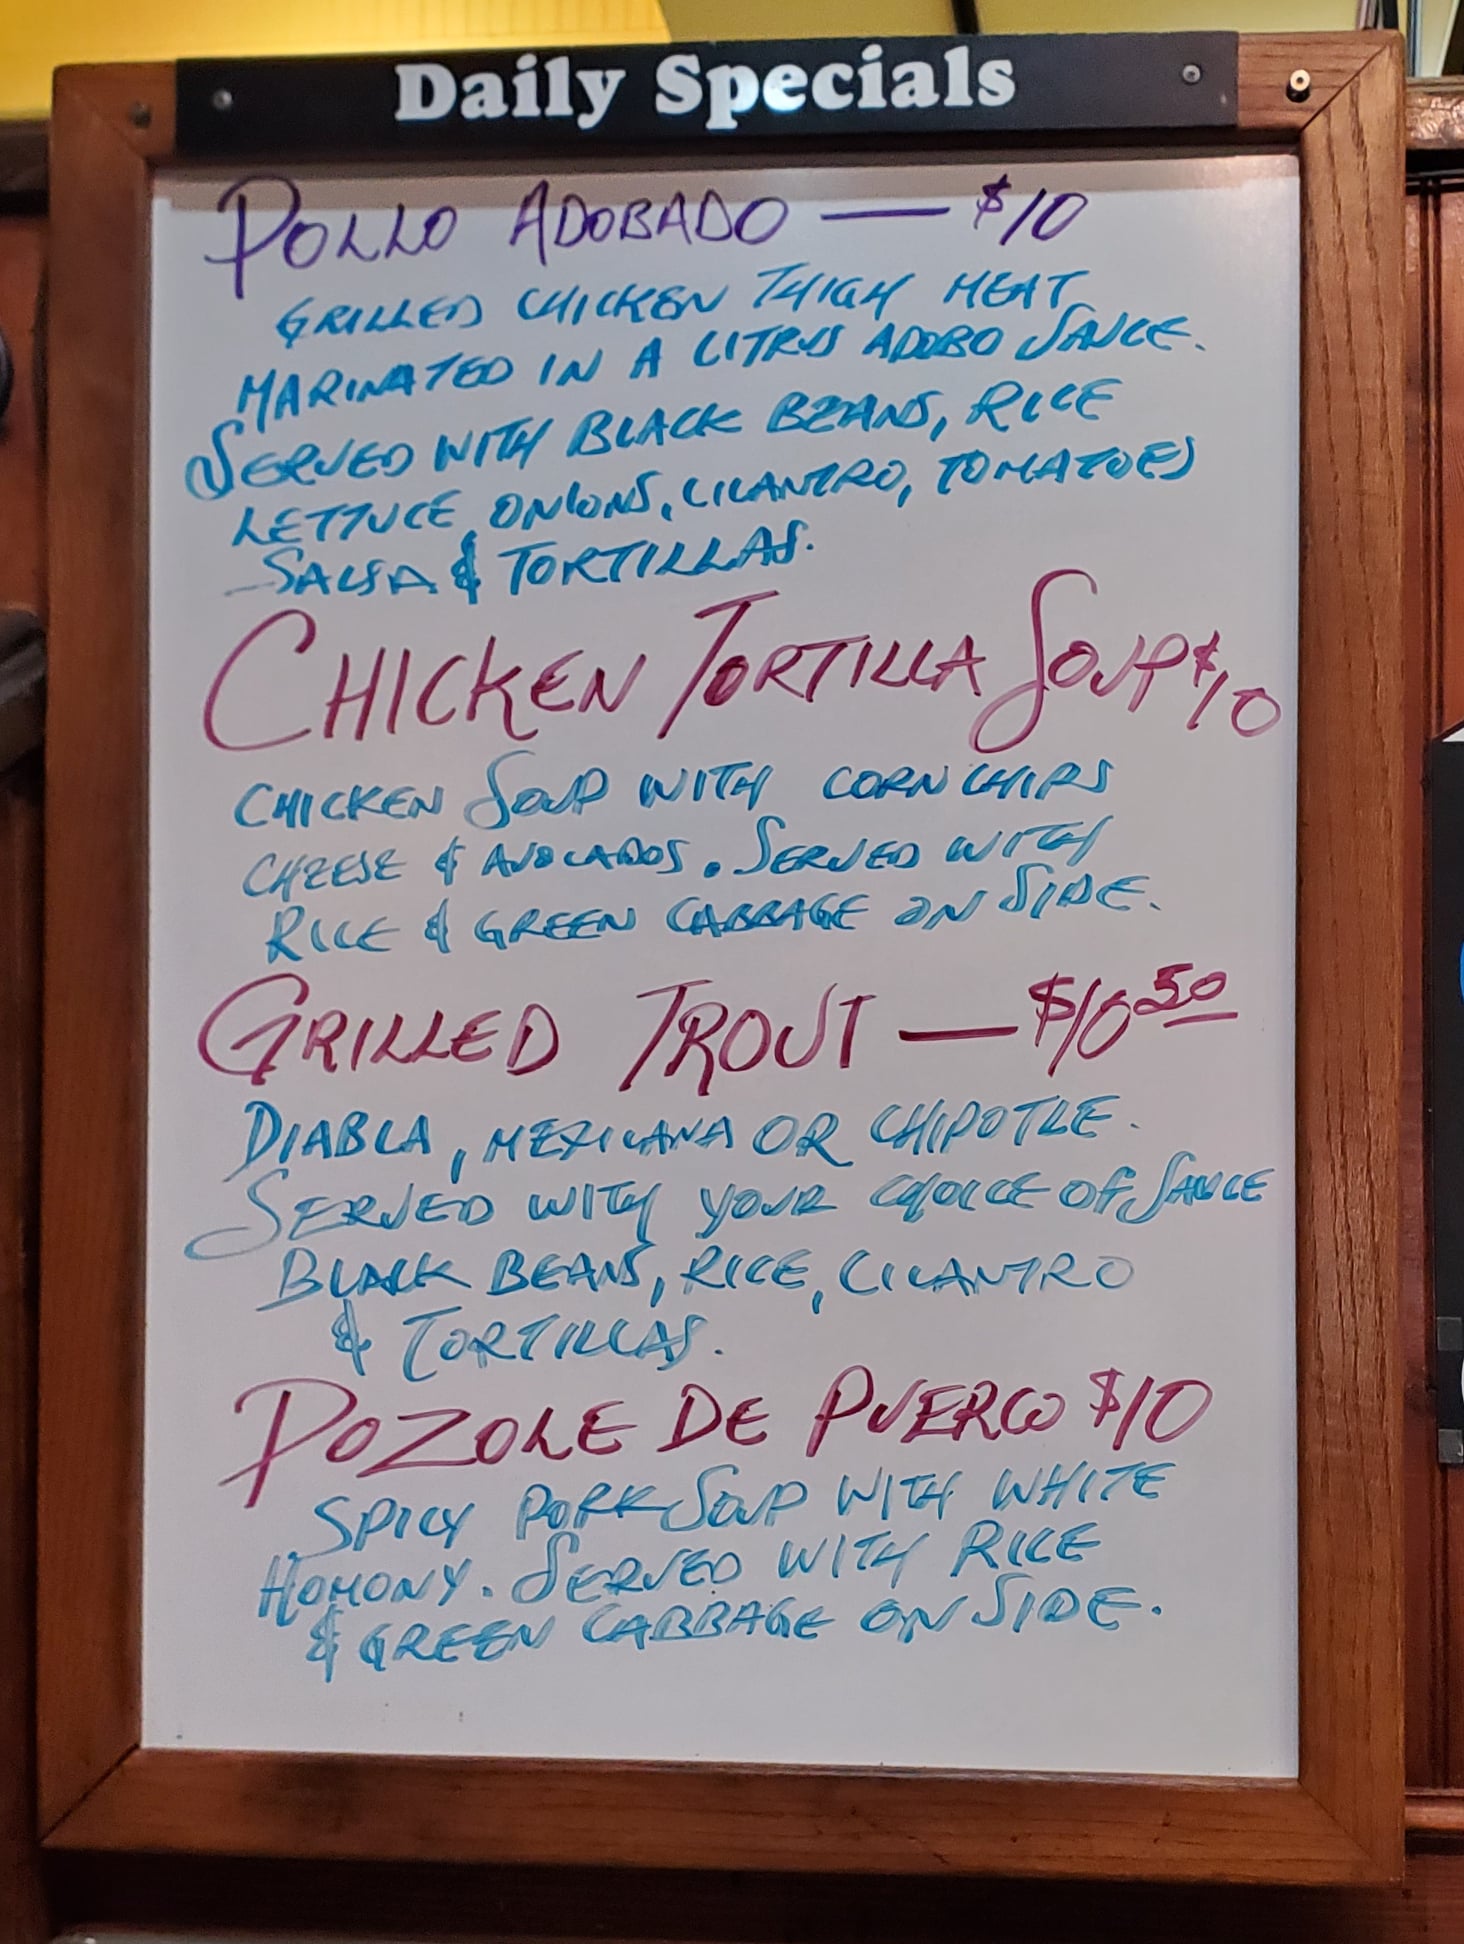 Daily Specials
POLLO ADOBADO — $10
GRILLED CHICKEN THIGH MEAT
MARINATED IN A CITRUS ADOBO SAUCE.
SERVED WITH BLACK BEANS, RICE
LETTUCE, ONIONS, CILANTRO, TOMATOES
SALSA & TORTILLAS.
CHICKEN TORTILLA SOUP $10
CHICKEN SOUP WITH CORN CHIPS
CHEESE & AVOCADOS. SERVED WITH
RICE & GREEN CABBAGE ON SIDE.
GRILLED TROUT — $10 50
DIABLA, MEXICANA OR CHIPOTLE.
SERVED WITH YOUR CHOICE OF SAUCE
BLACK BEANS, RICE, CILANTRO
& TORTILLAS.
POZOLE DE PUERCO $10
SPICY PORK SOUP WITH WHITE
HOMONY. SERVED WITH RICE
& GREEN CABBAGE ON SIDE.